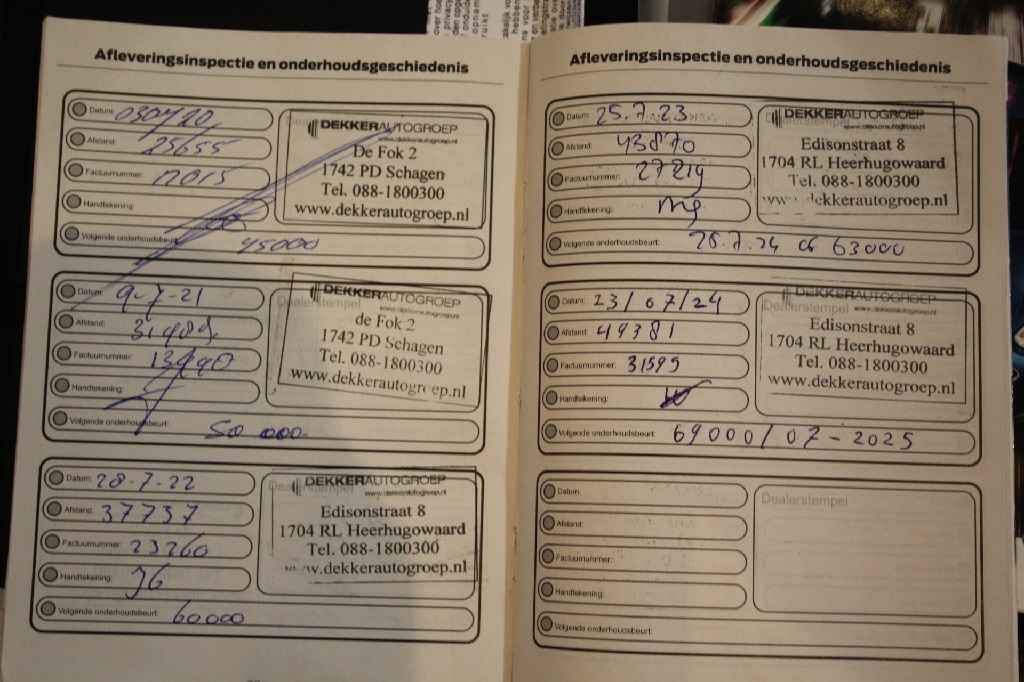 Afleveringsinspectie en onderhoudsgeschiedenis
Datum: 030720
Afstand: 25655
Factuurnummer: 12015
Handtekening:
Volgende onderhoudsbeurt: 45000
DEKKERAUTOGROEP
www.dekkerautogroep.nl
De Fok 2
1742 PD Schagen
Tel. 088-1800300
www.dekkerautogroep.nl
Datum: 9-7-21
Afstand: 31489
Factuurnummer:
Handtekening:
Volgende onderhoudsbeurt: 50 000
Dealerstempel
DEKKERAUTOGROEP
www.dekkerautogroep.nl
de Fok 2
1742 PD Schagen
Tel. 088-1800300
www.dekkerautogroep.nl
Datum: 28-7-22
Afstand: 37737
Factuurnummer: 23260
Handtekening:
Volgende onderhoudsbeurt: 60000
Dealerstempel
DEKKERAUTOGROEP
www.dekkerautogroep.nl
Edisonstraat 8
1704 RL Heerhugowaard
Tel. 088-1800300
www.dekkerautogroep.nl
Afleveringsinspectie en onderhoudsgeschiedenis
Datum: 25.7.23
Afstand: 43870
Factuurnummer: 27219
Handtekening:
Volgende onderhoudsbeurt: 25.7.24 of 63000
Dealerstempel
DEKKERAUTOGROEP
www.dekkerautogroep.nl
Edisonstraat 8
1704 RL Heerhugowaard
Tel. 088-1800300
www.dekkerautogroep.nl
Datum: 23/07/24
Afstand: 49381
Factuurnummer: 31599
Handtekening:
Volgende onderhoudsbeurt: 69000/07-2025
Dealerstempel
DEKKERAUTOGROEP
www.dekkerautogroep.nl
Edisonstraat 8
1704 RL Heerhugowaard
Tel. 088-1800300
www.dekkerautogroep.nl
Datum:
Afstand:
Factuurnummer:
Handtekening:
Volgende onderhoudsbeurt:
Dealerstempel